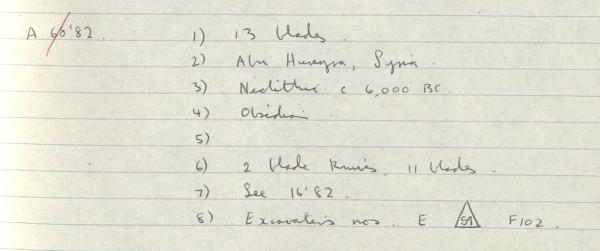 A 60'82. 1) 13 blades.
2) Abu Hureyra, Syria.
3) Neolithic c 6,000 BC.
4) Obsidian
5)
6) 2 blade knives, 11 blades.
7) See 16'82.
8) Excavator's nos. E 51 F102.